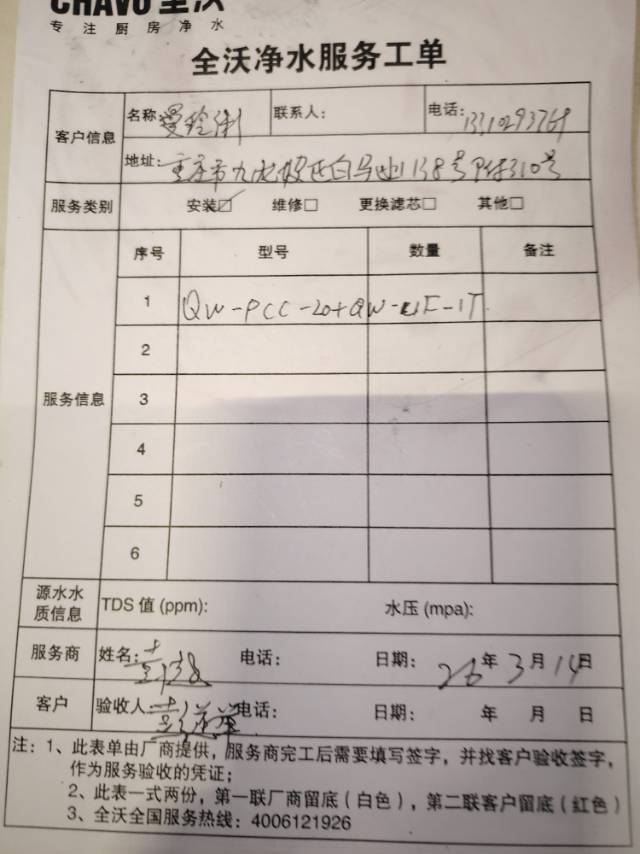 CHAVO全沃
专注厨房净水
全沃净水服务工单
客户信息
名称:
联系人:
电话:
地址: 重庆市九龙坡区白马凼138号附310号
服务类别 安装☑ 维修□ 更换滤芯□ 其他□
服务信息
序号 型号 数量 备注
1 QW-PCC-20+QW-UF-1T
2
3
4
5
6
源水水质信息 TDS 值 (ppm): 水压 (mpa):
服务商 姓名: 电话: 日期: 26年3月14日
客户 验收人: 电话: 日期: 年 月 日
注: 1、此表单由厂商提供, 服务商完工后需要填写签字, 并找客户验收签字,
作为服务验收的凭证;
2、此表一式两份, 第一联厂商留底 (白色), 第二联客户留底 (红色)
3、全沃全国服务热线: 4006121926